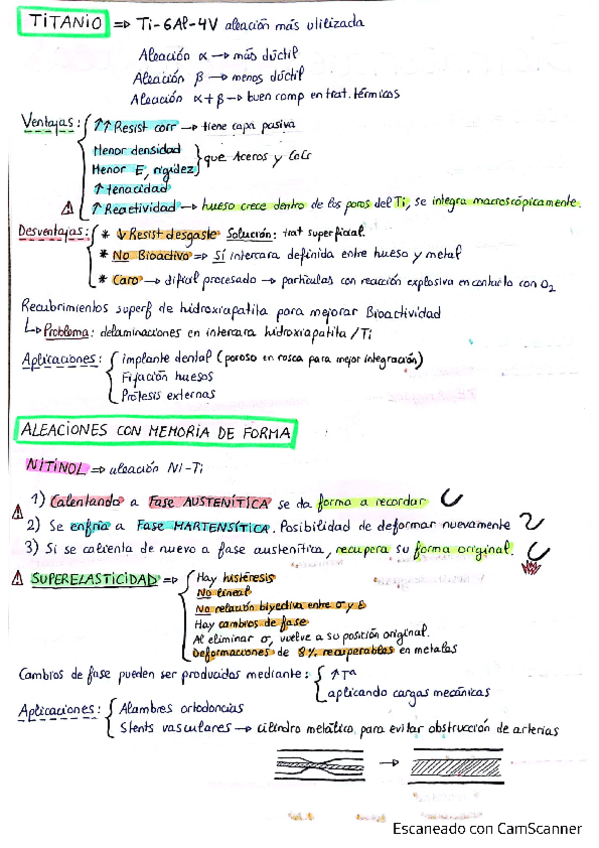 TITANIO ⇒ Ti-6Al-4V aleación más utilizada
Aleación α → más dúctil
Aleación β → menos dúctil
Aleación α+β → buen comp en trat. térmicos
Ventajas: ↑↑ Resist corr → tiene capa pasiva
Menor densidad
Menor E, rigidez } que Aceros y CoCr
↑ tenacidad
⚠ ↑ Reactividad → hueso crece dentro de los poros del Ti, se integra macroscópicamente.
Desventajas: * ↓ Resist desgaste Solución: trat superficial.
* No Bioactivo ⇒ Sí intercara definida entre hueso y metal
* Caro → difícil procesado → partículas con reacción explosiva en contacto con O2
Recubrimientos superf de hidroxiapatita para mejorar Bioactividad
↳ Problema: delaminaciones en intercara hidroxiapatita/Ti
Aplicaciones: implante dental (poroso en rosca para mejor integración)
Fijación huesos
Prótesis externas
ALEACIONES CON MEMORIA DE FORMA
NITINOL ⇒ aleación Ni-Ti
⚠ 1) Calentando a Fase AUSTENÍTICA se da forma a recordar
2) Se enfría a Fase MARTENSÍTICA. Posibilidad de deformar nuevamente
3) Si se calienta de nuevo a fase austenítica, recupera su forma original.
⚠ SUPERELASTICIDAD ⇒ Hay histéresis
No lineal
No relación biyectiva entre σ y ε
Hay cambios de fase
Al eliminar σ, vuelve a su posición original.
Deformaciones de 8% recuperables en metales
Cambios de fase pueden ser producidos mediante: ↑Tª
aplicando cargas mecánicas
Aplicaciones: Alambres ortodoncias
Stents vasculares → cilindro metálico para evitar obstrucción de arterias
Escaneado con CamScanner